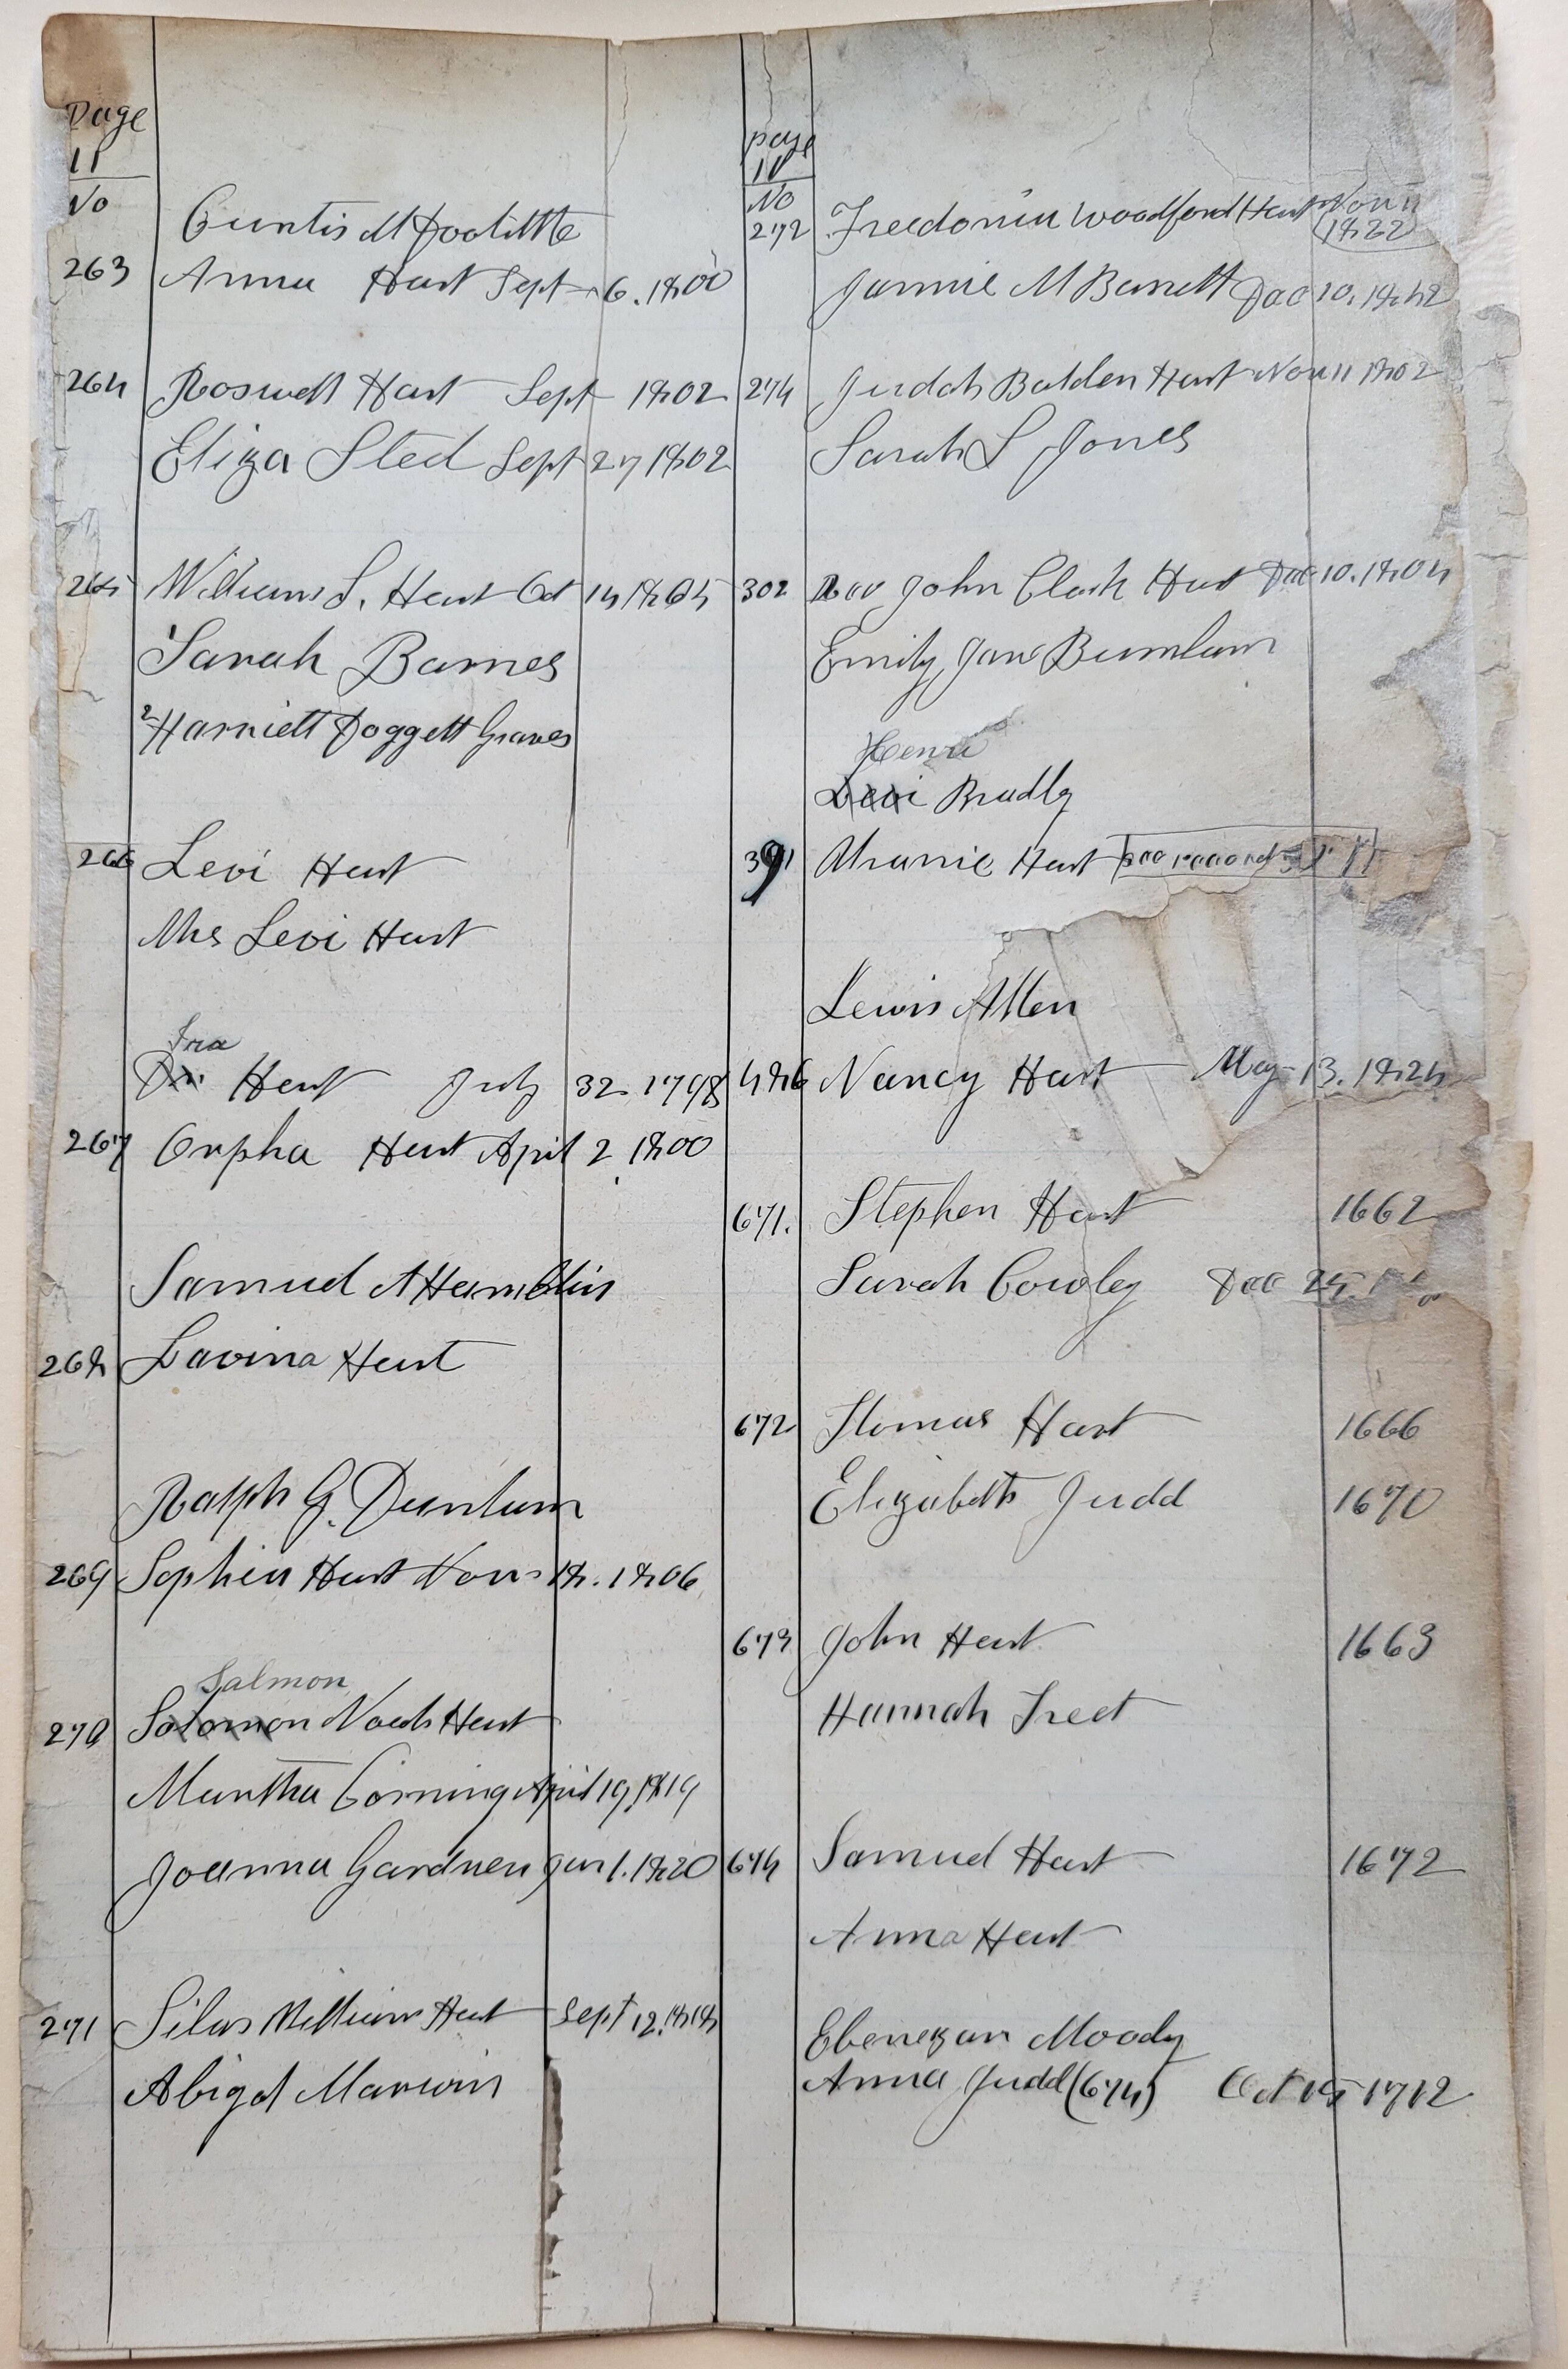 Page
11
No
Curtis M Doolittle
263 Anna Hart Sept 6. 1800
264 Roswell Hart Sept 1802
Eliza Sted Sept 27 1802
265 William S. Hart Oct 14 1805
1 Sarah Barnes
2 Harriett Doggett Graves
266 Levi Hart
Mrs Levi Hart
Ira
Hart July 32 1798
267 Orpha Hart April 2 1800
Samuel A Hamblin
268 Lavina Hart
Ralph G. Dunham
269 Sophia Hart Nov 18. 1806
Salmon
270 Solomon Hart
Martha Corning April 19, 1819
Joanna Gardner Jan 1. 1820
271 Silas William Hart Sept 12. 1818
Abigal Marwin
page
11
No
272 Freedonia Woodford Hart Nov 11
1822
Jannie M Barrett Dec 10. 1842
274 Judah Belden Hart Nov 11 1802
Sarah S Jones
302 Rev John Clark Hart Dec 10. 1804
Emily Jane Burnham
Levi Bradly
391 Uranie Hart
Lewis Allen
486 Nancy Hart May 13. 1824
671. Stephen Hart 1662
Sarah Cowley Dec 25.
672 Thomas Hart 1666
Elizabeth Judd 1670
673 John Hart 1663
Hannah Treet
674 Samuel Hart 1672
Anna Hart
Ebenezar Moody
Anna Judd (674) Oct 15 1712